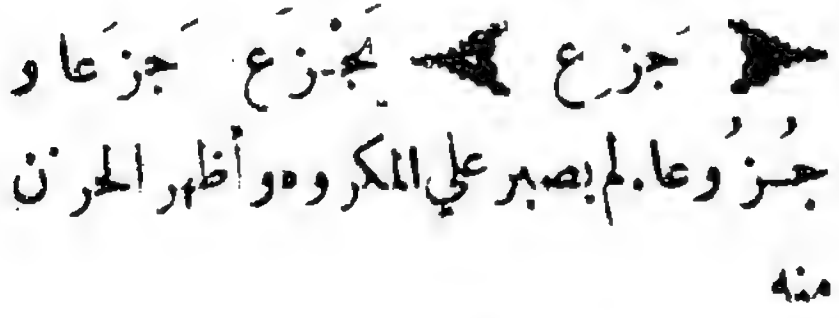 ﴿ جَزِع ﴾ يَجْزَع جَزَعا و
جُزُوعا. لم يصبر علي المكروه وأظهر الحزن
منه